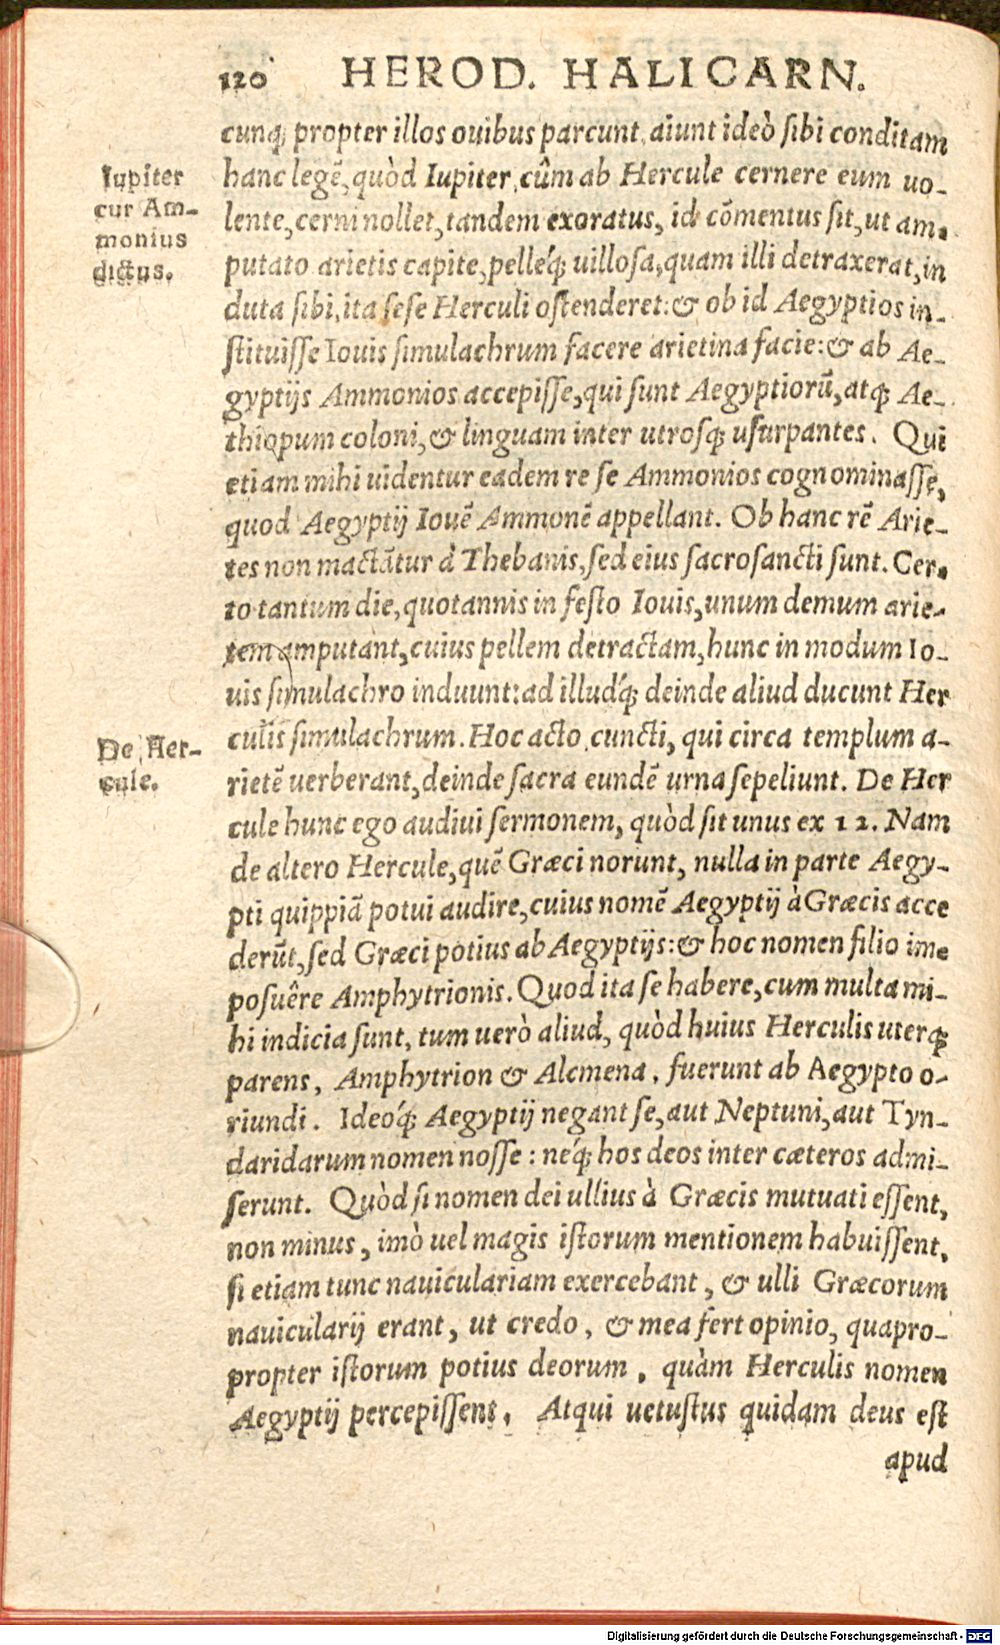 120 HEROD. HALICARN.
cunq; propter illos ouibus parcunt, aiunt ideò sibi conditam
hanc legẽ, quòd Iupiter, cûm ab Hercule cernere eum uo-
lente, cerni nollet, tandem exoratus, id cõmentus sit, ut am-
putato arietis capite, pelleq́; uillosa, quam illi detraxerat, in
duta sibi, ita sese Herculi ostenderet: & ob id Aegyptios in-
stituisse Iouis simulachrum facere arietina facie: & ab Ae-
gyptijs Ammonios accepisse, qui sunt Aegyptiorũ, atq; Ae-
thiopum coloni, & linguam inter utrosq; usurpantes. Qui
etiam mihi uidentur eadem re se Ammonios cognominasse,
quod Aegyptij Iouẽ Ammonẽ appellant. Ob hanc rẽ Arie-
tes non mactãtur à Thebanis, sed eius sacrosancti sunt. Cer-
to tantum die, quotannis in festo Iouis, unum demum arie-
tem amputant, cuius pellem detractam, hunc in modum Io-
uis simulachro induunt: ad illudq́; deinde aliud ducunt Her
culis simulachrum. Hoc acto, cuncti, qui circa templum a-
rietẽ uerberant, deinde sacra eundẽ urna sepeliunt. De Her
cule hunc ego audiui sermonem, quòd sit unus ex 12. Nam
de altero Hercule, quẽ Græci norunt, nulla in parte Aegy-
pti quippiã potui audire, cuius nomẽ Aegyptij à Græcis acce
derũt, sed Græci potius ab Aegyptijs: & hoc nomen filio im-
posuêre Amphytrionis. Quod ita se habere, cum multa mi-
hi indicia sunt, tum uerò aliud, quòd huius Herculis uterq;
parens, Amphytrion & Alcmena, fuerunt ab Aegypto o-
riundi. Ideoq́; Aegyptij negant se, aut Neptuni, aut Tyn-
daridarum nomen nosse: neq́; hos deos inter cæteros admi-
serunt. Quòd si nomen dei ullius à Græcis mutuati essent,
non minus, imò uel magis istorum mentionem habuissent,
si etiam tunc nauiculariam exercebant, & ulli Græcorum
nauicularij erant, ut credo, & mea fert opinio, quapro-
propter istorum potius deorum, quàm Herculis nomen
Aegyptij percepissent. Atqui uetustus quidam deus est
apud
Iupiter
cur Am-
monius
dictus.
De Her-
cule.
Digitalisierung gefördert durch die Deutsche Forschungsgemeinschaft - DFG